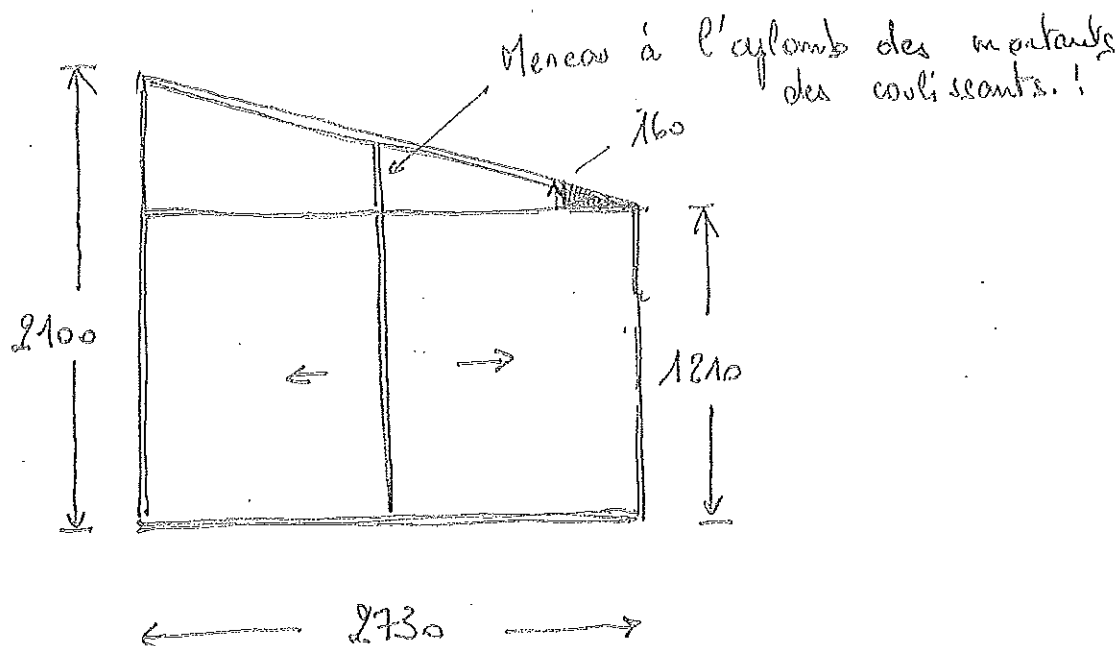 Meneau à l'aplomb des montants
des coulissants.!
160
2100
1210
2730